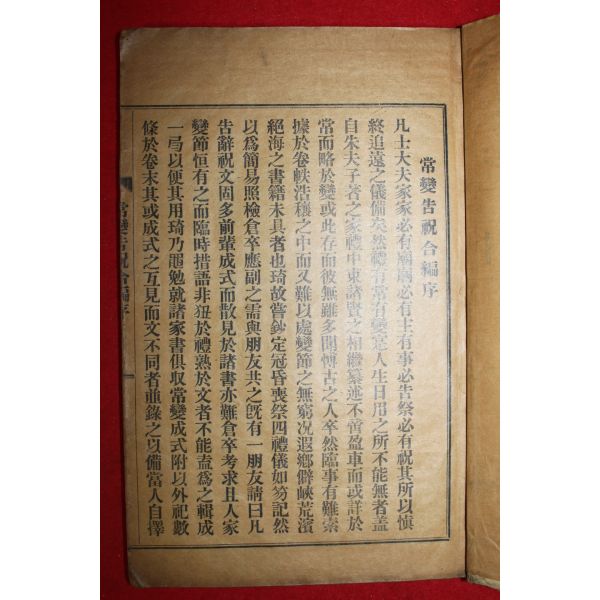 常變告祝合編序
凡士大夫家家必有廟廟必有主有事必告祭必有祝其所以愼
終追遠之儀備矣然禮有常有變寔人生日用之所不能無者蓋
自朱夫子著之家禮中東諸賢之相繼纂述不啻盈車而或詳於
常而略於變或此存而彼無雖多聞愽古之人卒然臨事有難索
據於卷帙浩穰之中而又難以處變節之無窮况遐鄕僻峽荒濱
絕海之書籍未具者也琦故嘗鈔定冠昏喪祭四禮儀如笏記然
以爲簡易照檢倉卒應副之需與朋友共之旣有一朋友請曰凡
告辭祝文固多前輩成式而散見於諸書亦難倉卒考求且人家
變節恒有之而臨時措語非狃於禮熟於文者不能盍爲之輯成
一弓以便其用琦乃黽勉就諸家書俱収常變成式附以外祀數
條於卷末其或成式之互見而文不同者並錄之以備當人自擇
常變告祝合編序